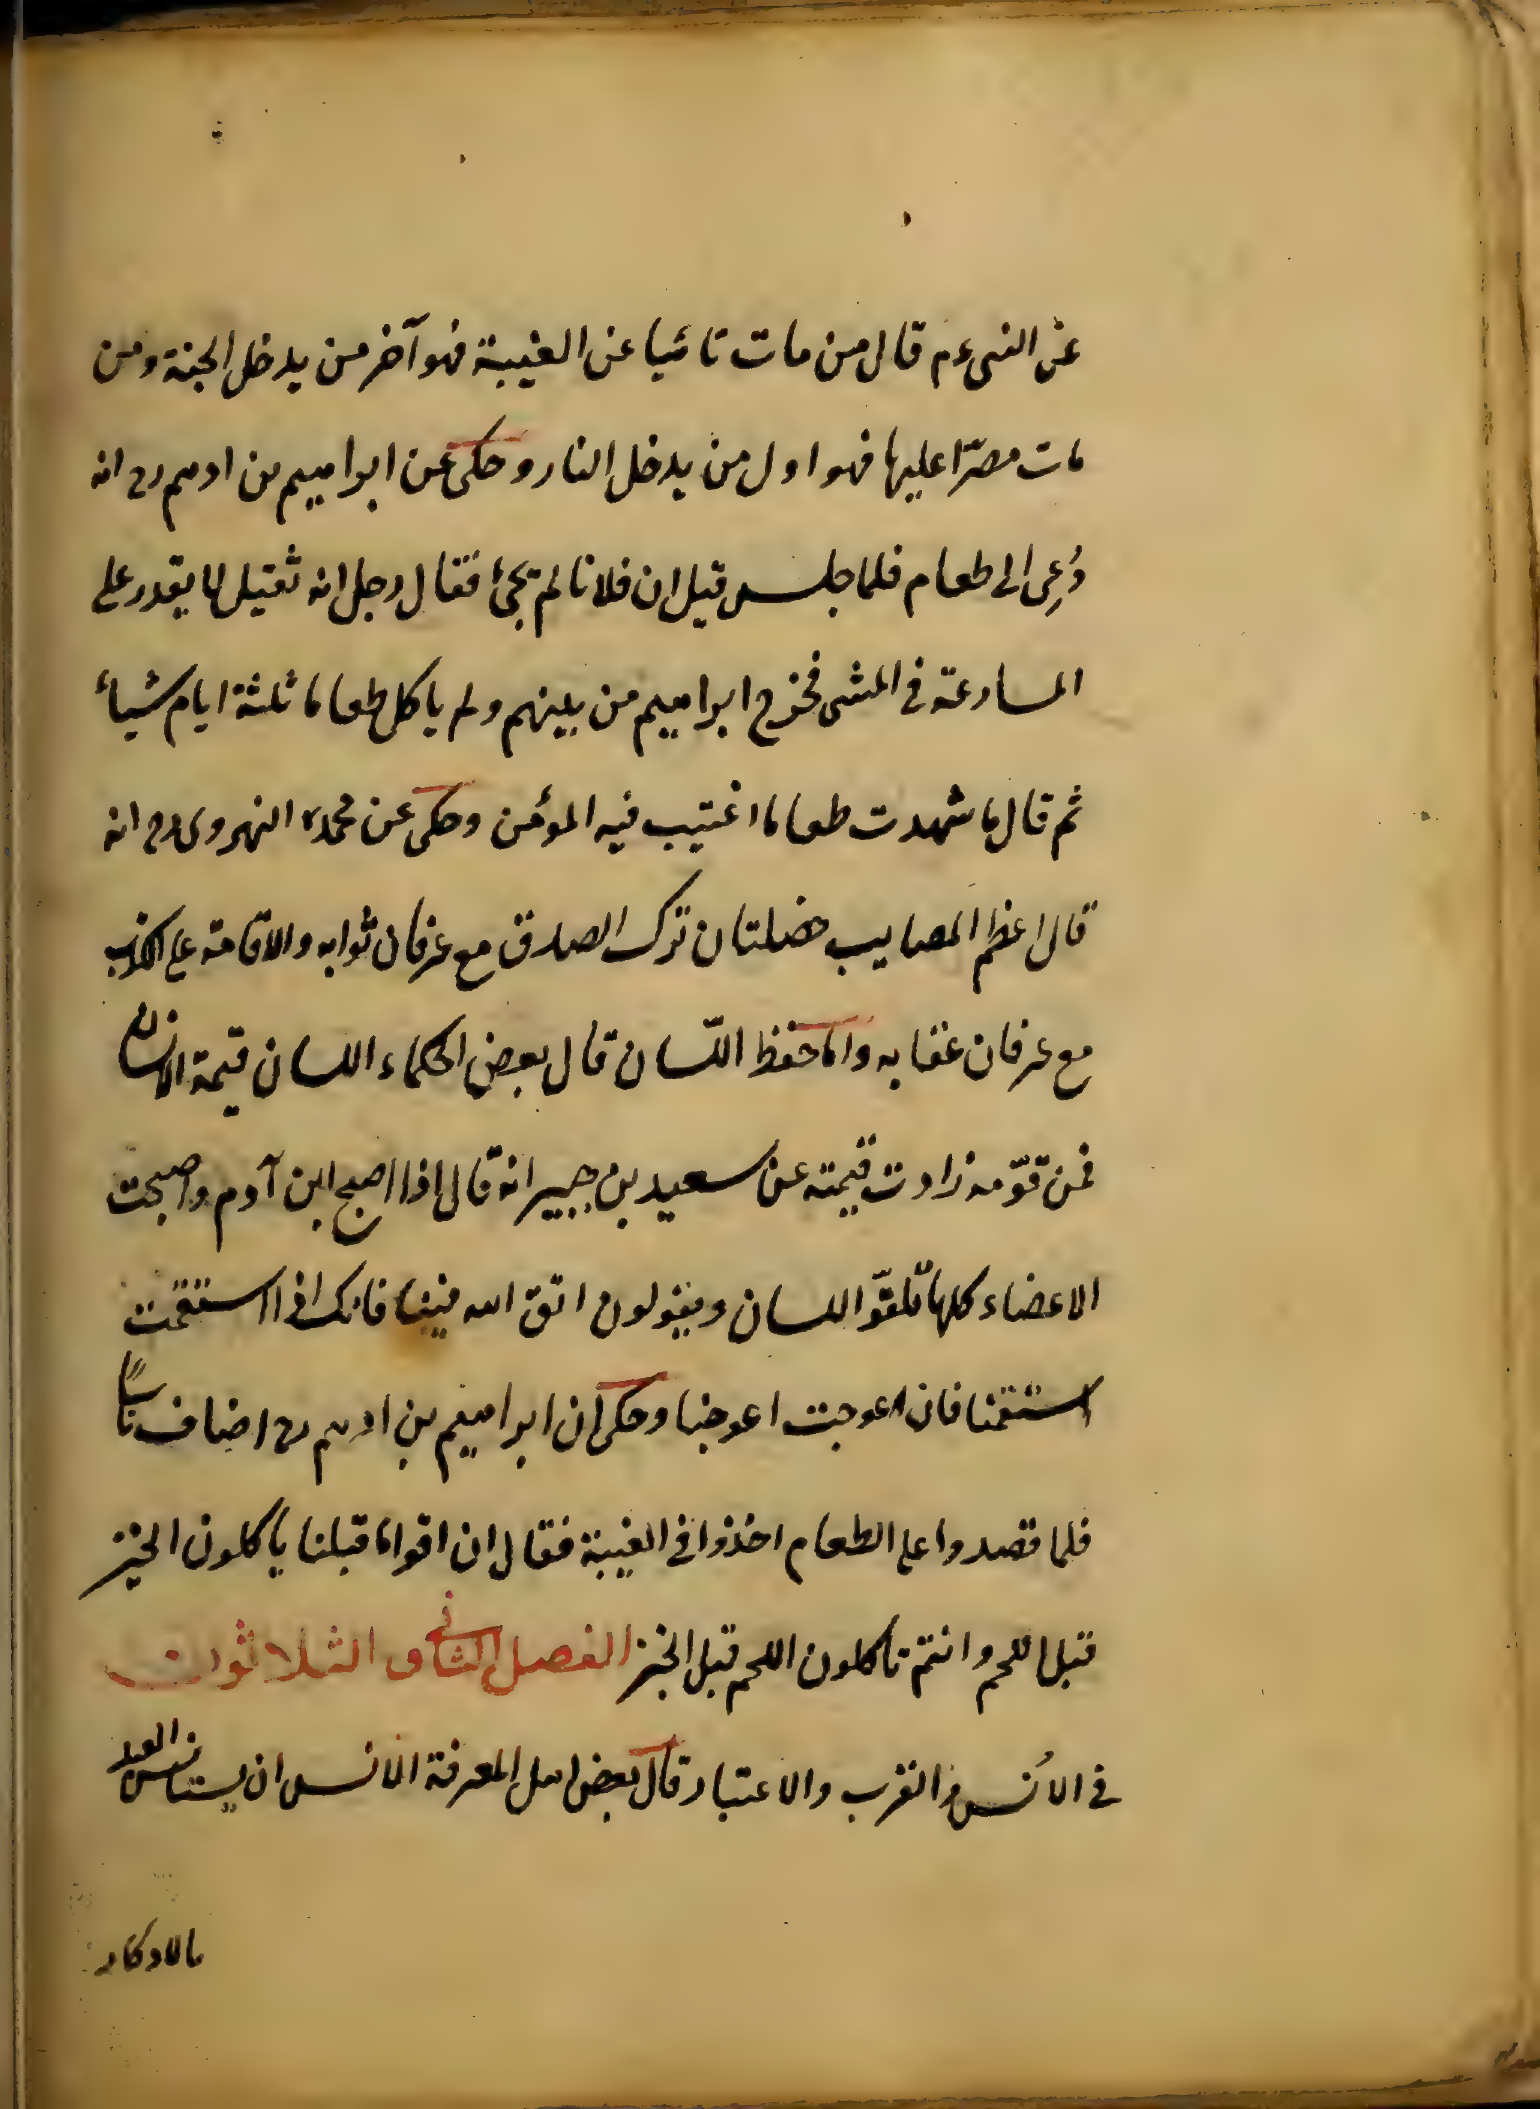 عن النبى ءم قال من مات تائبا عن الغيبة فهو آخر من يدخل الجنة ومن
مات مصرّا عليها فهو اول من يدخل النار وحكى عن ابراهيم بن ادهم رح انه
دُعِى الى طعام فلما جلس قيل ان فلانا لم يجئ فقال رجل انه ثقيل لا يقدر على
المسارعة فى المشى فخرج ابراهيم من بينهم ولم ياكل طعاما ثلثة ايام شيأ
ثم قال ما شهدت طعاما اغتيب فيه المؤمن وحكى عن محمد النهروى رح انه
قال اعظم المصايب خصلتان ترك الصدق مع عرفان ثوابه والاقامة على الكذب
مع عرفان عقابه واما حفظ اللّسان قال بعض الحكماء اللسان قيمة الانسان
فمن قوّمه زادت قيمته عن سعيد بن جبير انه قال اذا اصبح ابن آدم واصبحت
الاعضاء كلها تلقّو اللسان ويقولون اتق الله فينا فانك اذا استقمت
استقمنا فان اعوجت اعوجنا وحكى ان ابراهيم بن ادهم رح اضاف ناسًا
فلما قصدوا على الطعام اخذوا فى الغيبة فقال ان اقواما قبلنا ياكلون الخبز
قبل اللحم وانتم تاكلون اللحم قبل الخبز الفصل الثانى و الثلاثون
فى الاُنس والقرب والاعتبار قال بعض اهل المعرفة الانس ان يستانس العبد
بالاذكار